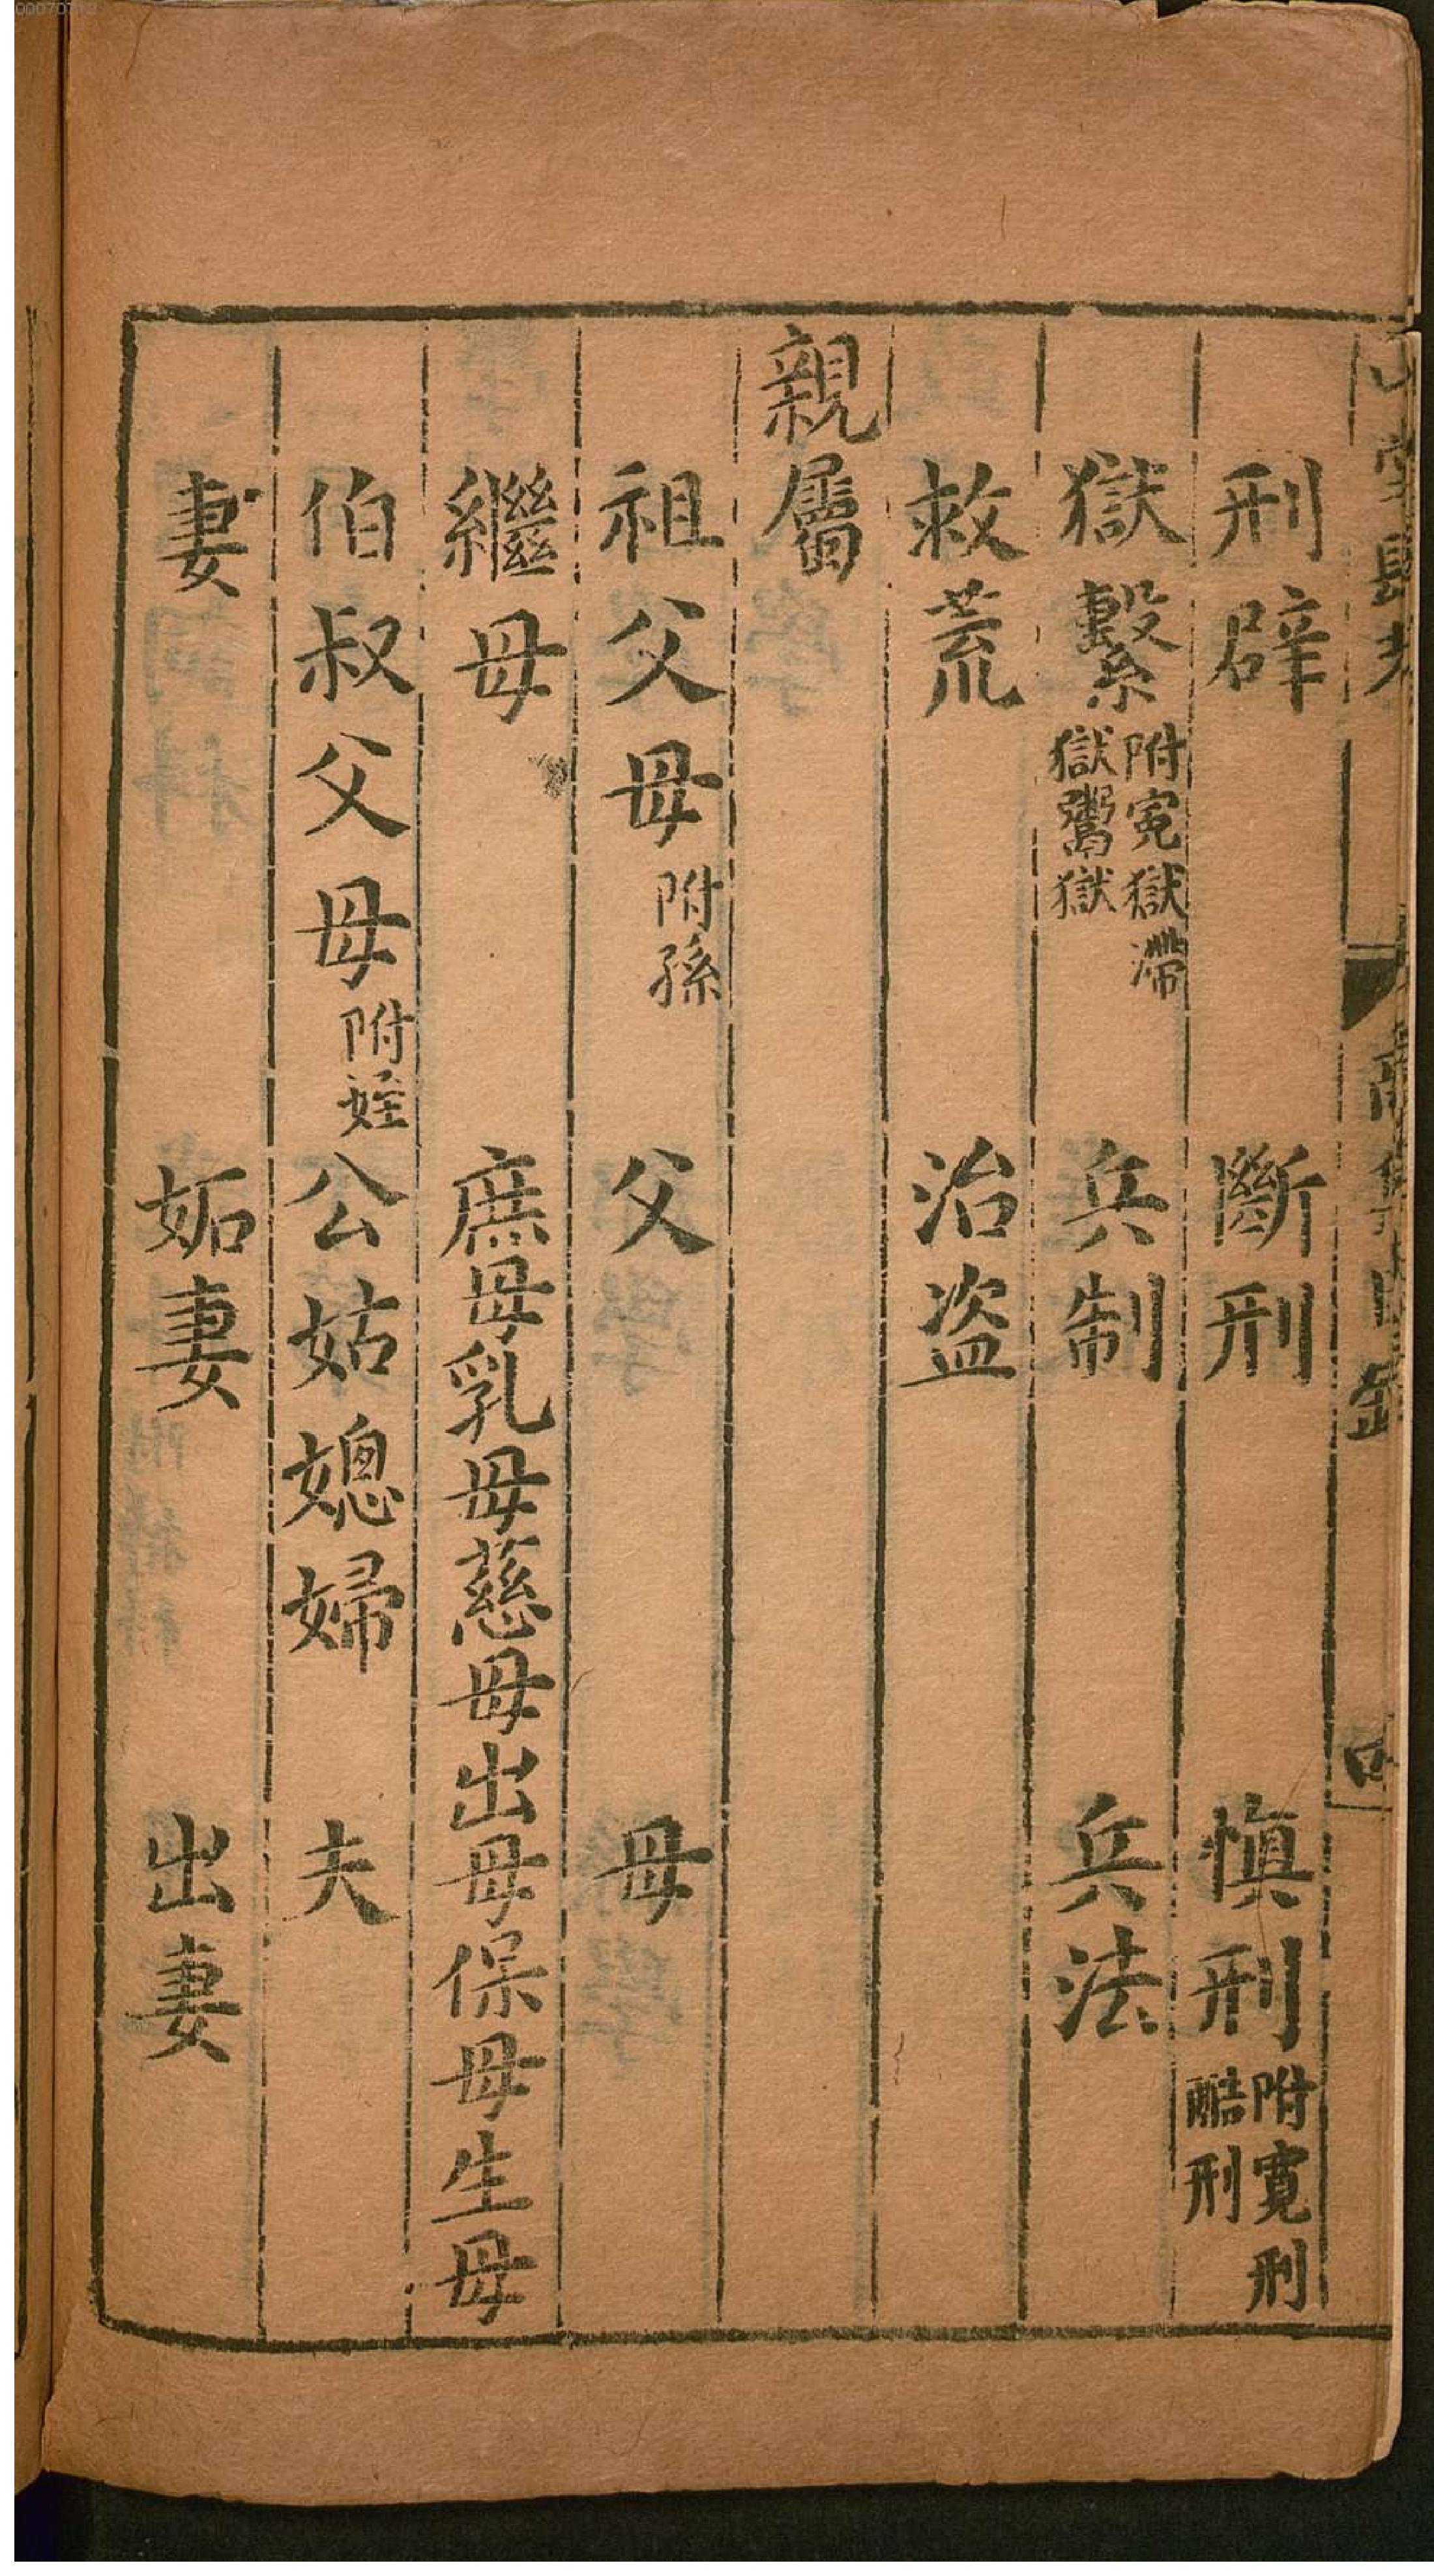 刑辟 斷刑 慎刑附寬刑酷刑
獄繫附寃獄滯獄鬻獄 兵制 兵法
救荒 治盗
親屬
祖父母附孫 父 母
繼母 庶母乳母慈母出母保母生母
伯叔父母附姪 公姑媳婦 夫
妻 妬妻 出妻